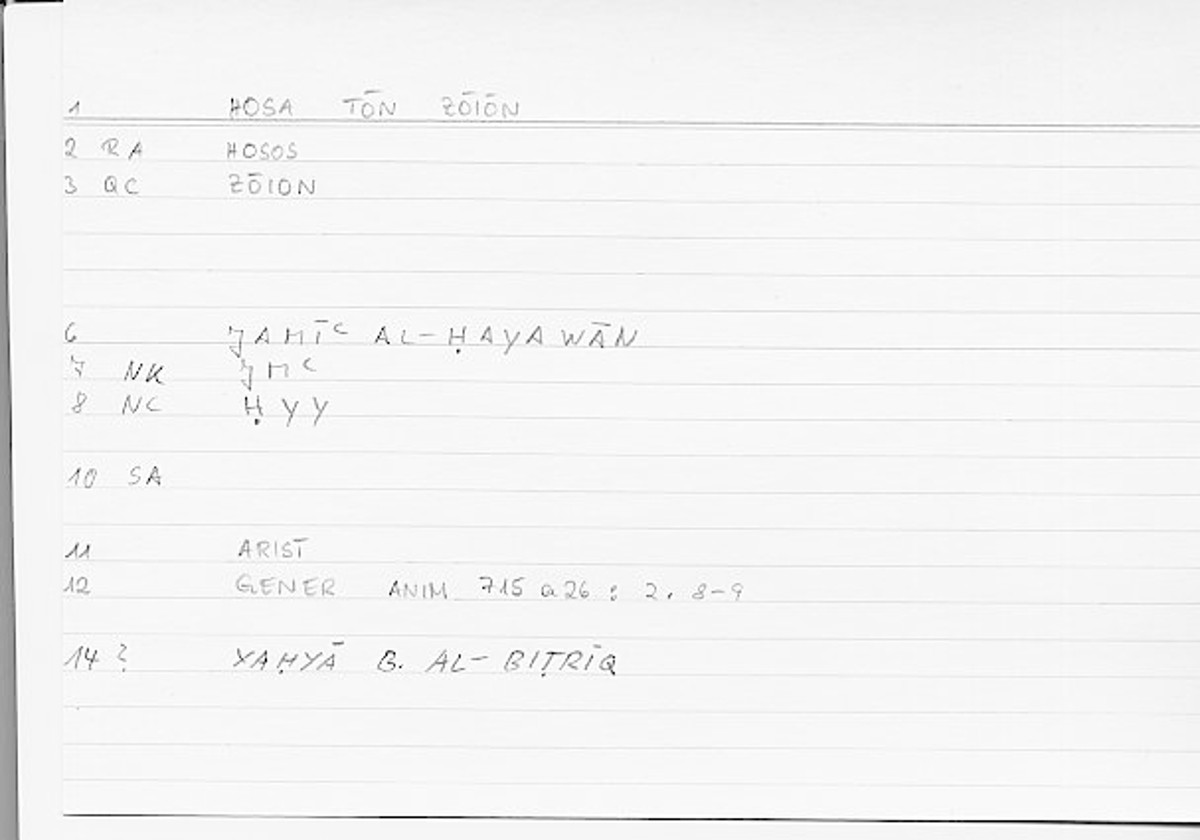 1 HOSA TŌN ZŌIŌN
2 RA HOSOS
3 QC ZŌION
6 JAMĪʿ AL-ḤAYAWĀN
7 NK JMʿ
8 NC ḤYY
10 SA
11 ARIST
12 GENER ANIM 715 a26 : 2. 8-9
14 ? YAḤYĀ B. AL-BIṬRĪQ